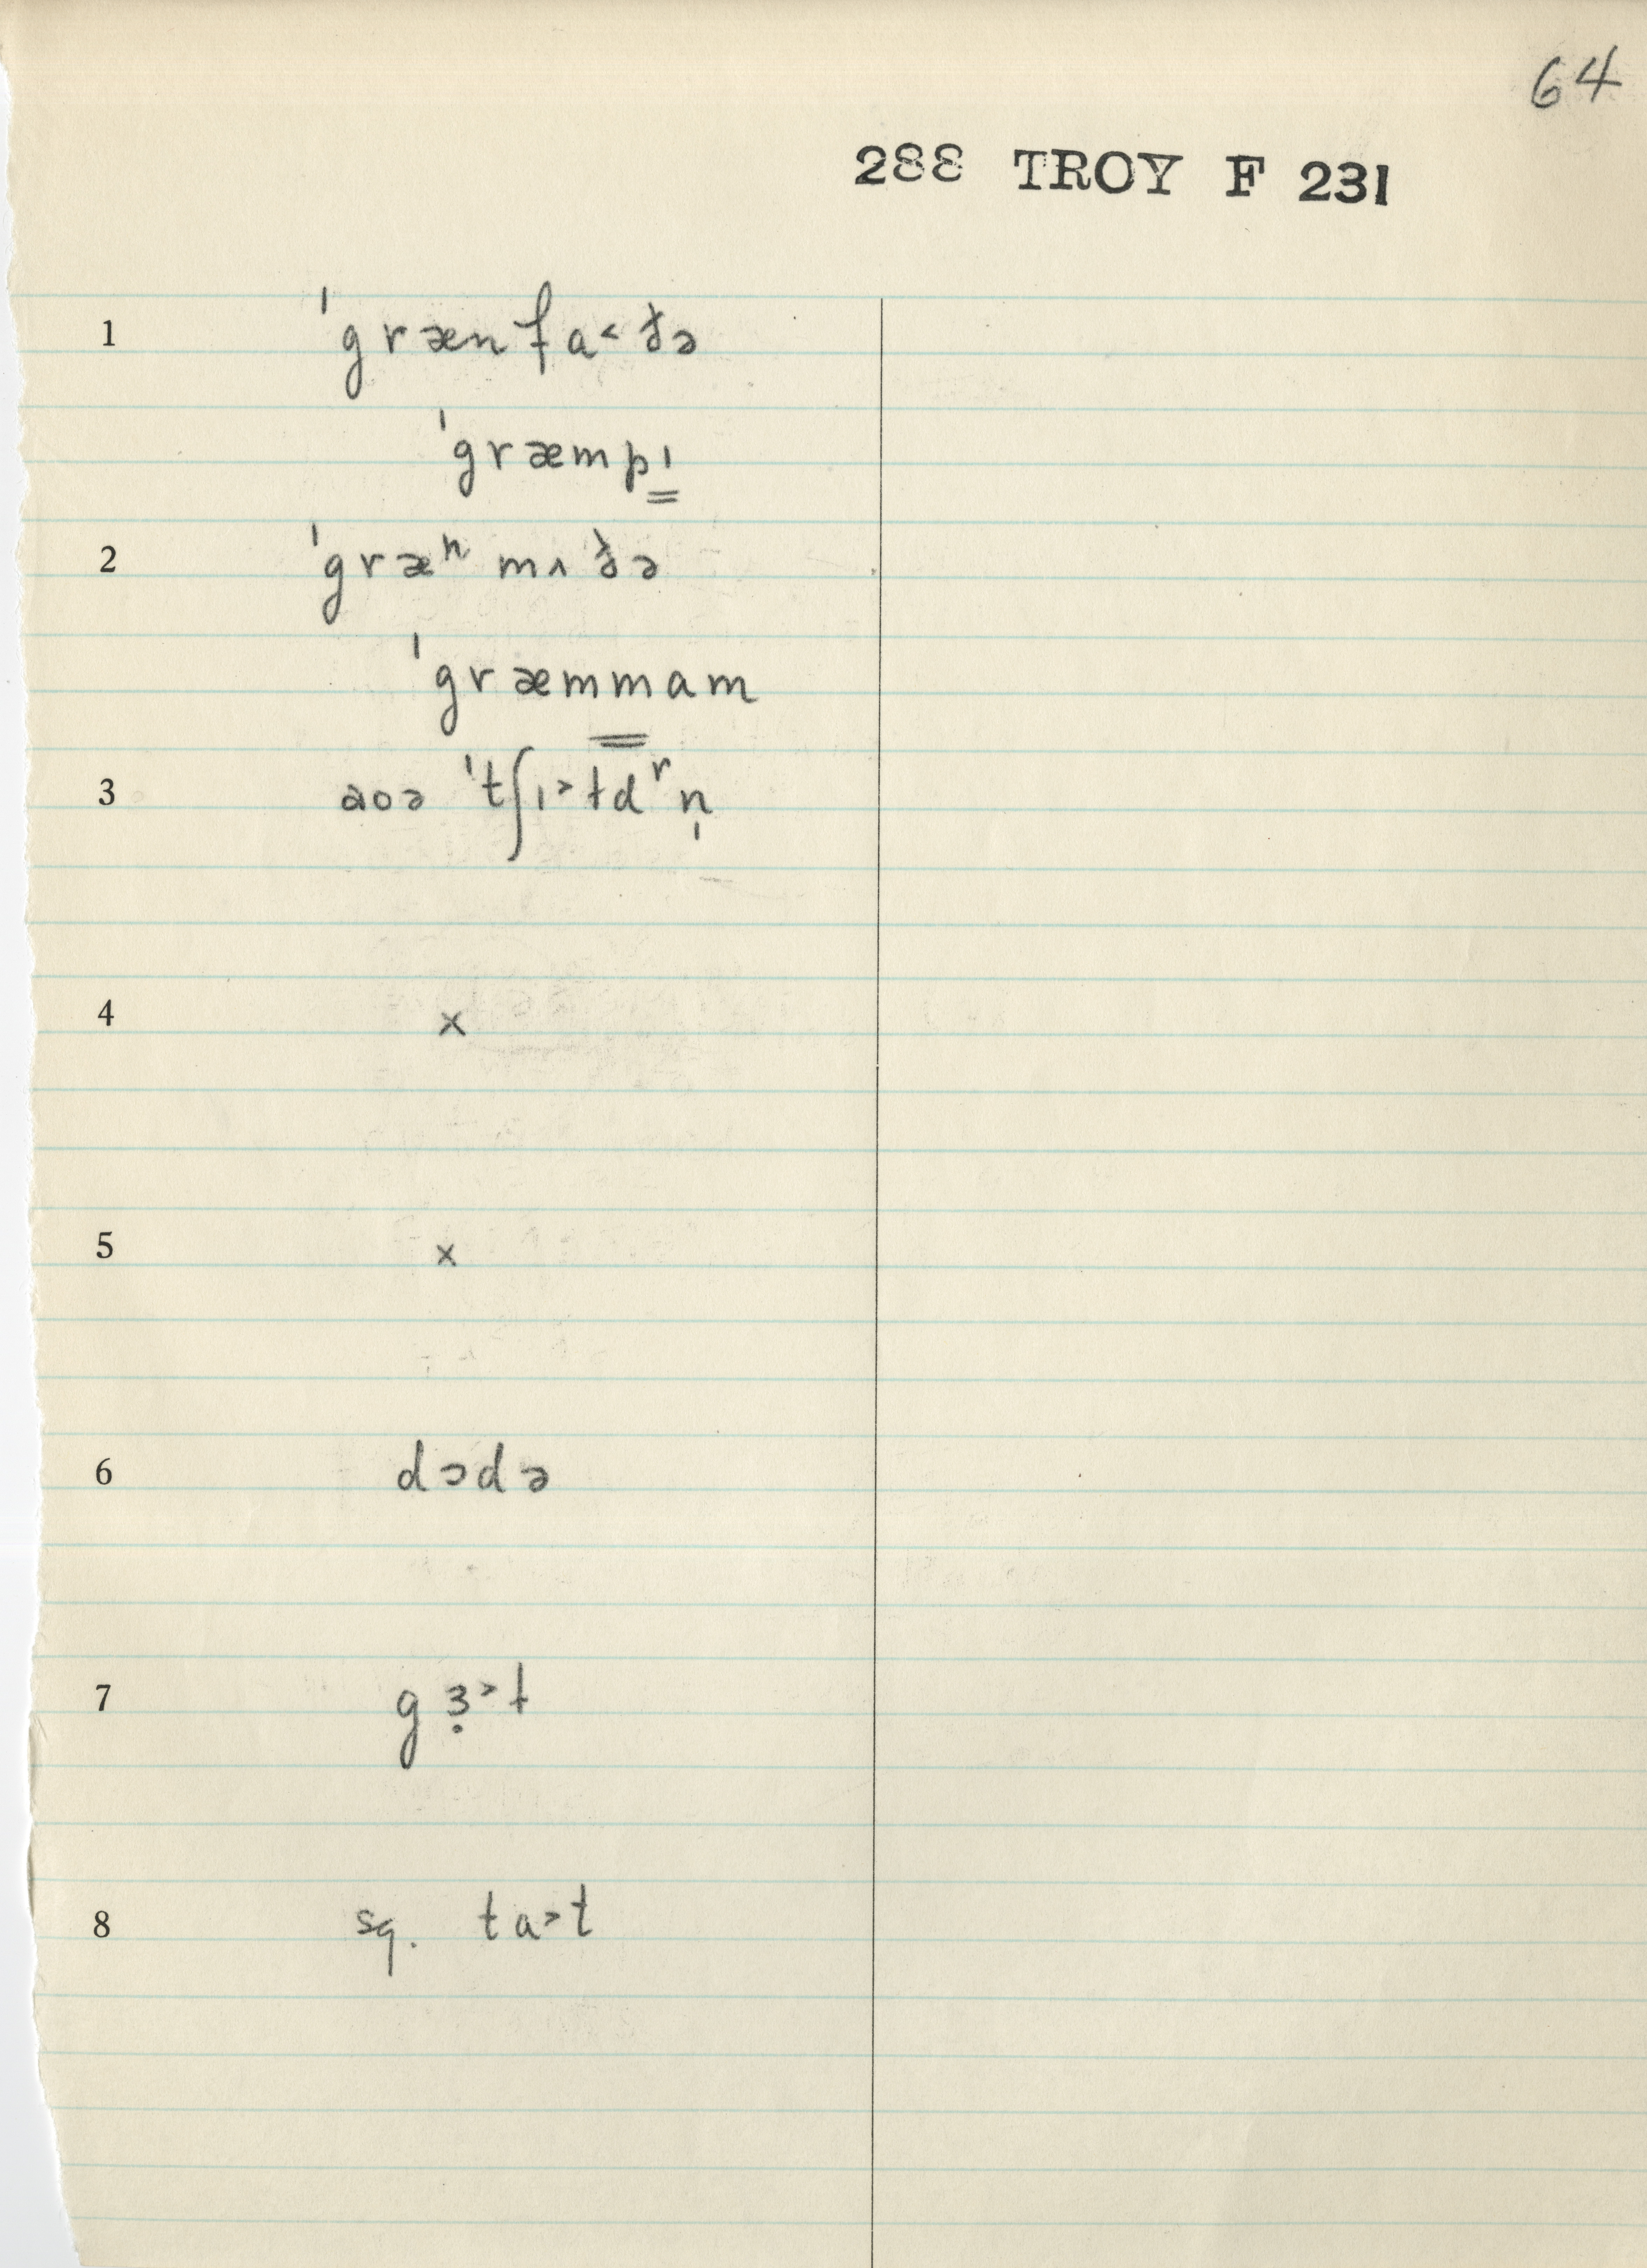 64
288 TROY F 231
1 ˈgrænfa˂ðə
ˈgræmpɪ
2 ˈgræⁿmʌðə
ˈgræmmam
3 aoə ˈtʃɪ˃ɫdʳn̩
4 x
5 x
6 dɔdə
7 gɜ̣˃ɫ
8 sq. ta˃t